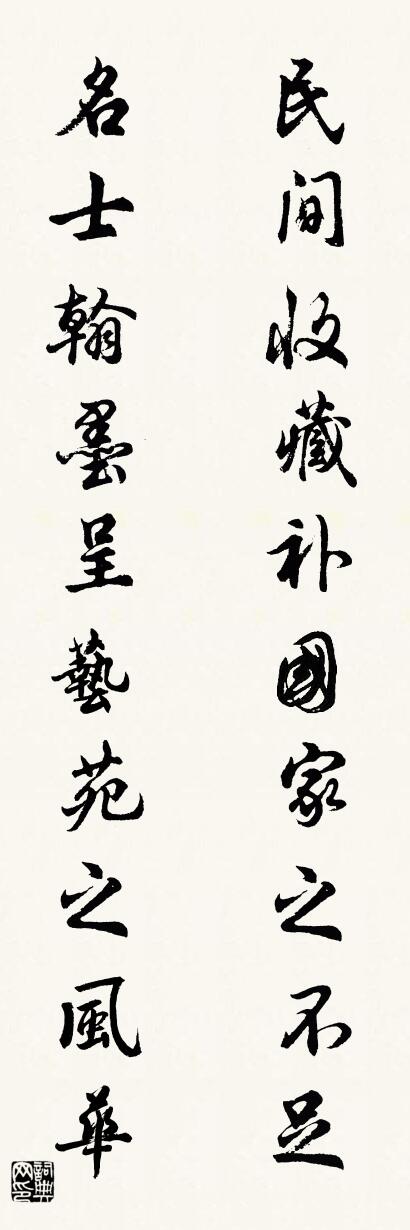 民间收藏补國家之不足
名士翰墨呈藝苑之風華
詞典网印